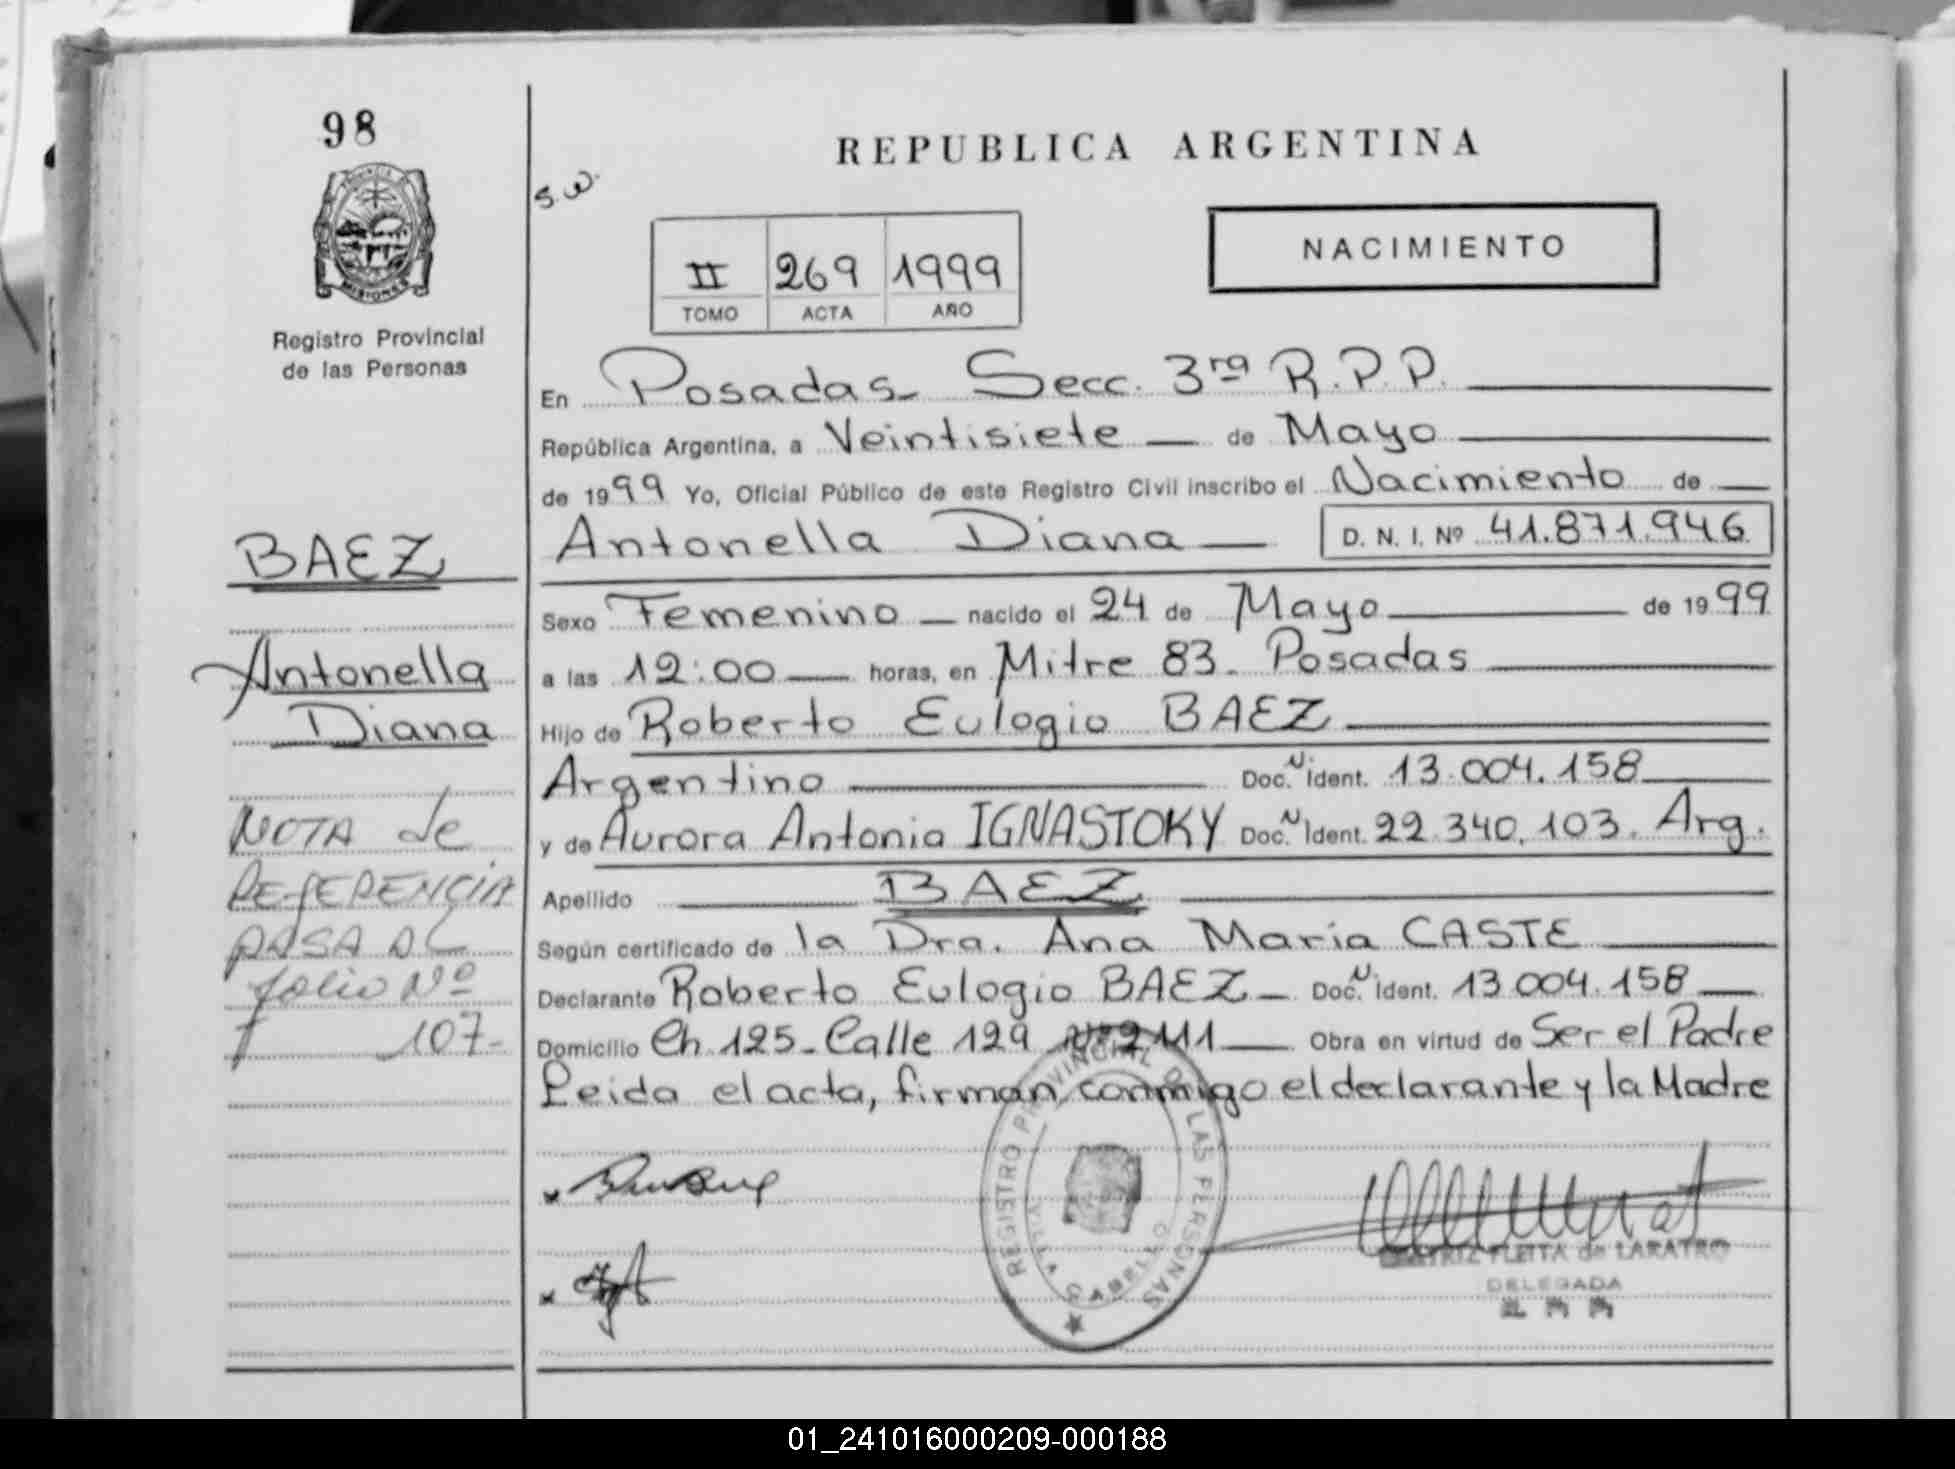 98
REPUBLICA ARGENTINA
S.W.
NACIMIENTO
II 269 1999
TOMO ACTA AÑO
MISIONES
Registro Provincial
de las Personas
En Posadas Secc. 3ra R.P.P.
República Argentina, a Veintisiete de Mayo
de 1999 Yo, Oficial Público de este Registro Civil inscribo el Nacimiento de
Antonella Diana D. N. I. Nº 41.871.946
BAEZ
Sexo Femenino nacido el 24 de Mayo de 1999
Antonella
Diana
a las 12:00 horas, en Mitre 83. Posadas
Hijo de Roberto Eulogio BAEZ
Argentino Doc. N Ident. 13.004.158
y de Aurora Antonia IGNASTOKY Doc. N Ident. 22.340.103. Arg.
NOTA de
REFERENCIA
PASA AL
folio Nº
107-
Apellido BAEZ
Según certificado de la Dra. Ana Maria CASTE
Declarante Roberto Eulogio BAEZ Doc. N Ident. 13.004.158
Domicilio Ch. 125 - Calle 129 Obra en virtud de Ser el Padre
Leida el acta, firman conmigo el declarante y la Madre
REGISTRO PROVINCIAL DE LAS PERSONAS
BEATRIZ FLEITA de LARATRO
DELEGADA
01_241016000209-000188